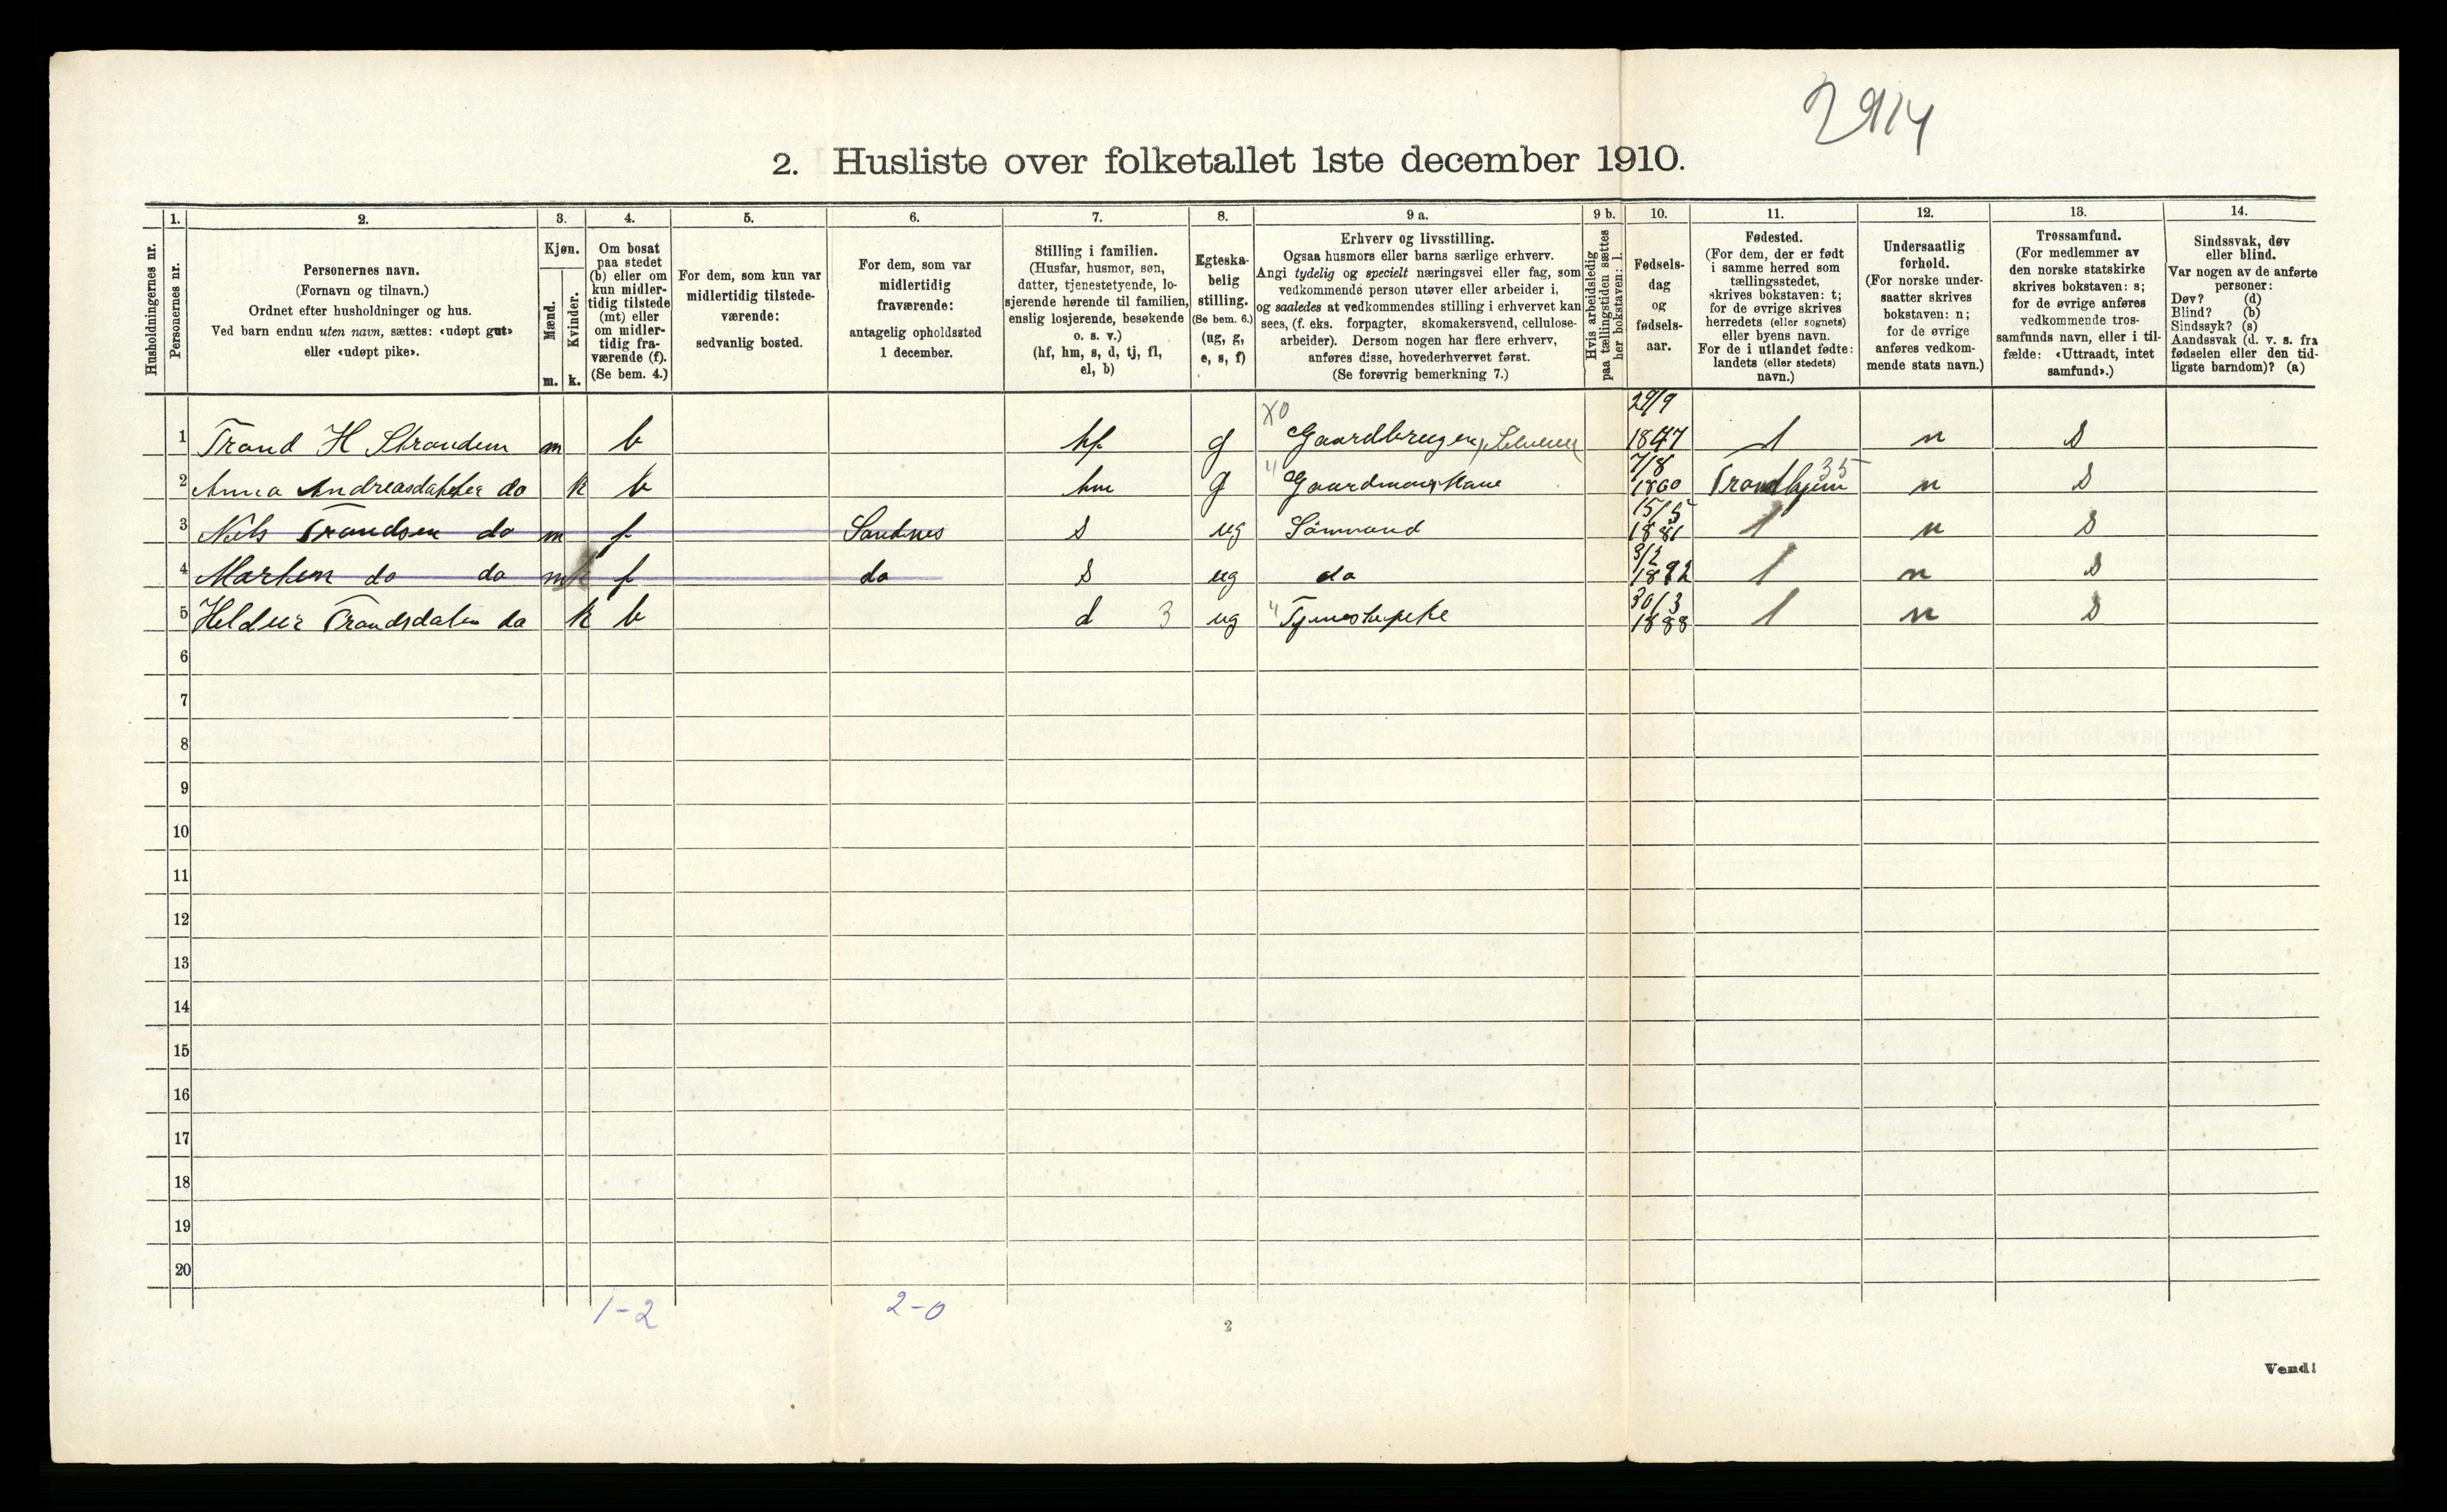 2914
2. Husliste over folketallet 1ste december 1910.
1. 2. 3. 4. 5. 6. 7. 8. 9 a. 9 b. 10. 11. 12. 13. 14.
Husholdningernes nr.
Personernes nr.
Personernes navn.
(Fornavn og tilnavn.)
Ordnet efter husholdninger og hus.
Ved barn endnu uten navn, sættes: «udøpt gut»
eller «udøpt pike».
Kjøn.
Mænd.
Kvinder.
m. k.
Om bosat
paa stedet
(b) eller om
kun midler-
tidig tilstede
(mt) eller
om midler-
tidig fra-
værende (f).
(Se bem. 4.)
For dem, som kun var
midlertidig tilstede-
værende:
sedvanlig bosted.
For dem, som var
midlertidig
fraværende:
antagelig opholdssted
1 december.
Stilling i familien.
(Husfar, husmor, søn,
datter, tjenestetyende, lo-
sjerende hørende til familien,
enslig losjerende, besøkende
o. s. v.)
(hf, hm, s, d, tj, fl,
el, b)
Egteska-
belig
stilling.
(Se bem. 6.)
(ug, g,
e, s, f)
Erhverv og livsstilling.
Ogsaa husmors eller barns særlige erhverv.
Angi tydelig og specielt næringsvei eller fag, som
vedkommende person utøver eller arbeider i,
og saaledes at vedkommendes stilling i erhvervet kan
sees, (f. eks. forpagter, skomakersvend, cellulose-
arbeider). Dersom nogen har flere erhverv,
anføres disse, hovederhvervet først.
(Se forøvrig bemerkning 7.)
Hvis arbeidsledig
paa tællingstiden sættes
her bokstaven: l.
Fødsels-
dag
og
fødsels-
aar.
Fødested.
(For dem, der er født
i samme herred som
tællingsstedet,
skrives bokstaven: t;
for de øvrige skrives
herredets (eller sognets)
eller byens navn.
For de i utlandet fødte:
landets (eller stedets)
navn.)
Undersaatlig
forhold.
(For norske under-
saatter skrives
bokstaven: n;
for de øvrige
anføres vedkom-
mende stats navn.)
Trossamfund.
(For medlemmer av
den norske statskirke
skrives bokstaven: s;
for de øvrige anføres
vedkommende tros-
samfunds navn, eller i til-
fælde: «Uttraadt, intet
samfund».)
Sindssvak, døv
eller blind.
Var nogen av de anførte
personer:
Døv? (d)
Blind? (b)
Sindssyk? (s)
Aandssvak (d. v. s. fra
fødselen eller den tid-
ligste barndom)? (a)
1 Trond H Stranden m b hf g X0 Gaardbruger 29/9 1847 t n S
2 Anna Andreasdatter do k b hm g " Gaardmands 7/8 1860 Trondhjem 35 n S
3 Nils Trondsen do m f Sandnes S ug Sømand 15/5 1881 t n S
4 Morten do do m f do S ug do 3/2 1892 t n S
5 Trondsdatter do k b d 3 ug " Tjenestepike 30/3 1888 t n S
6
7
8
9
10
11
12
13
14
15
16
17
18
19
20
1-2 2-0
2
Vend!